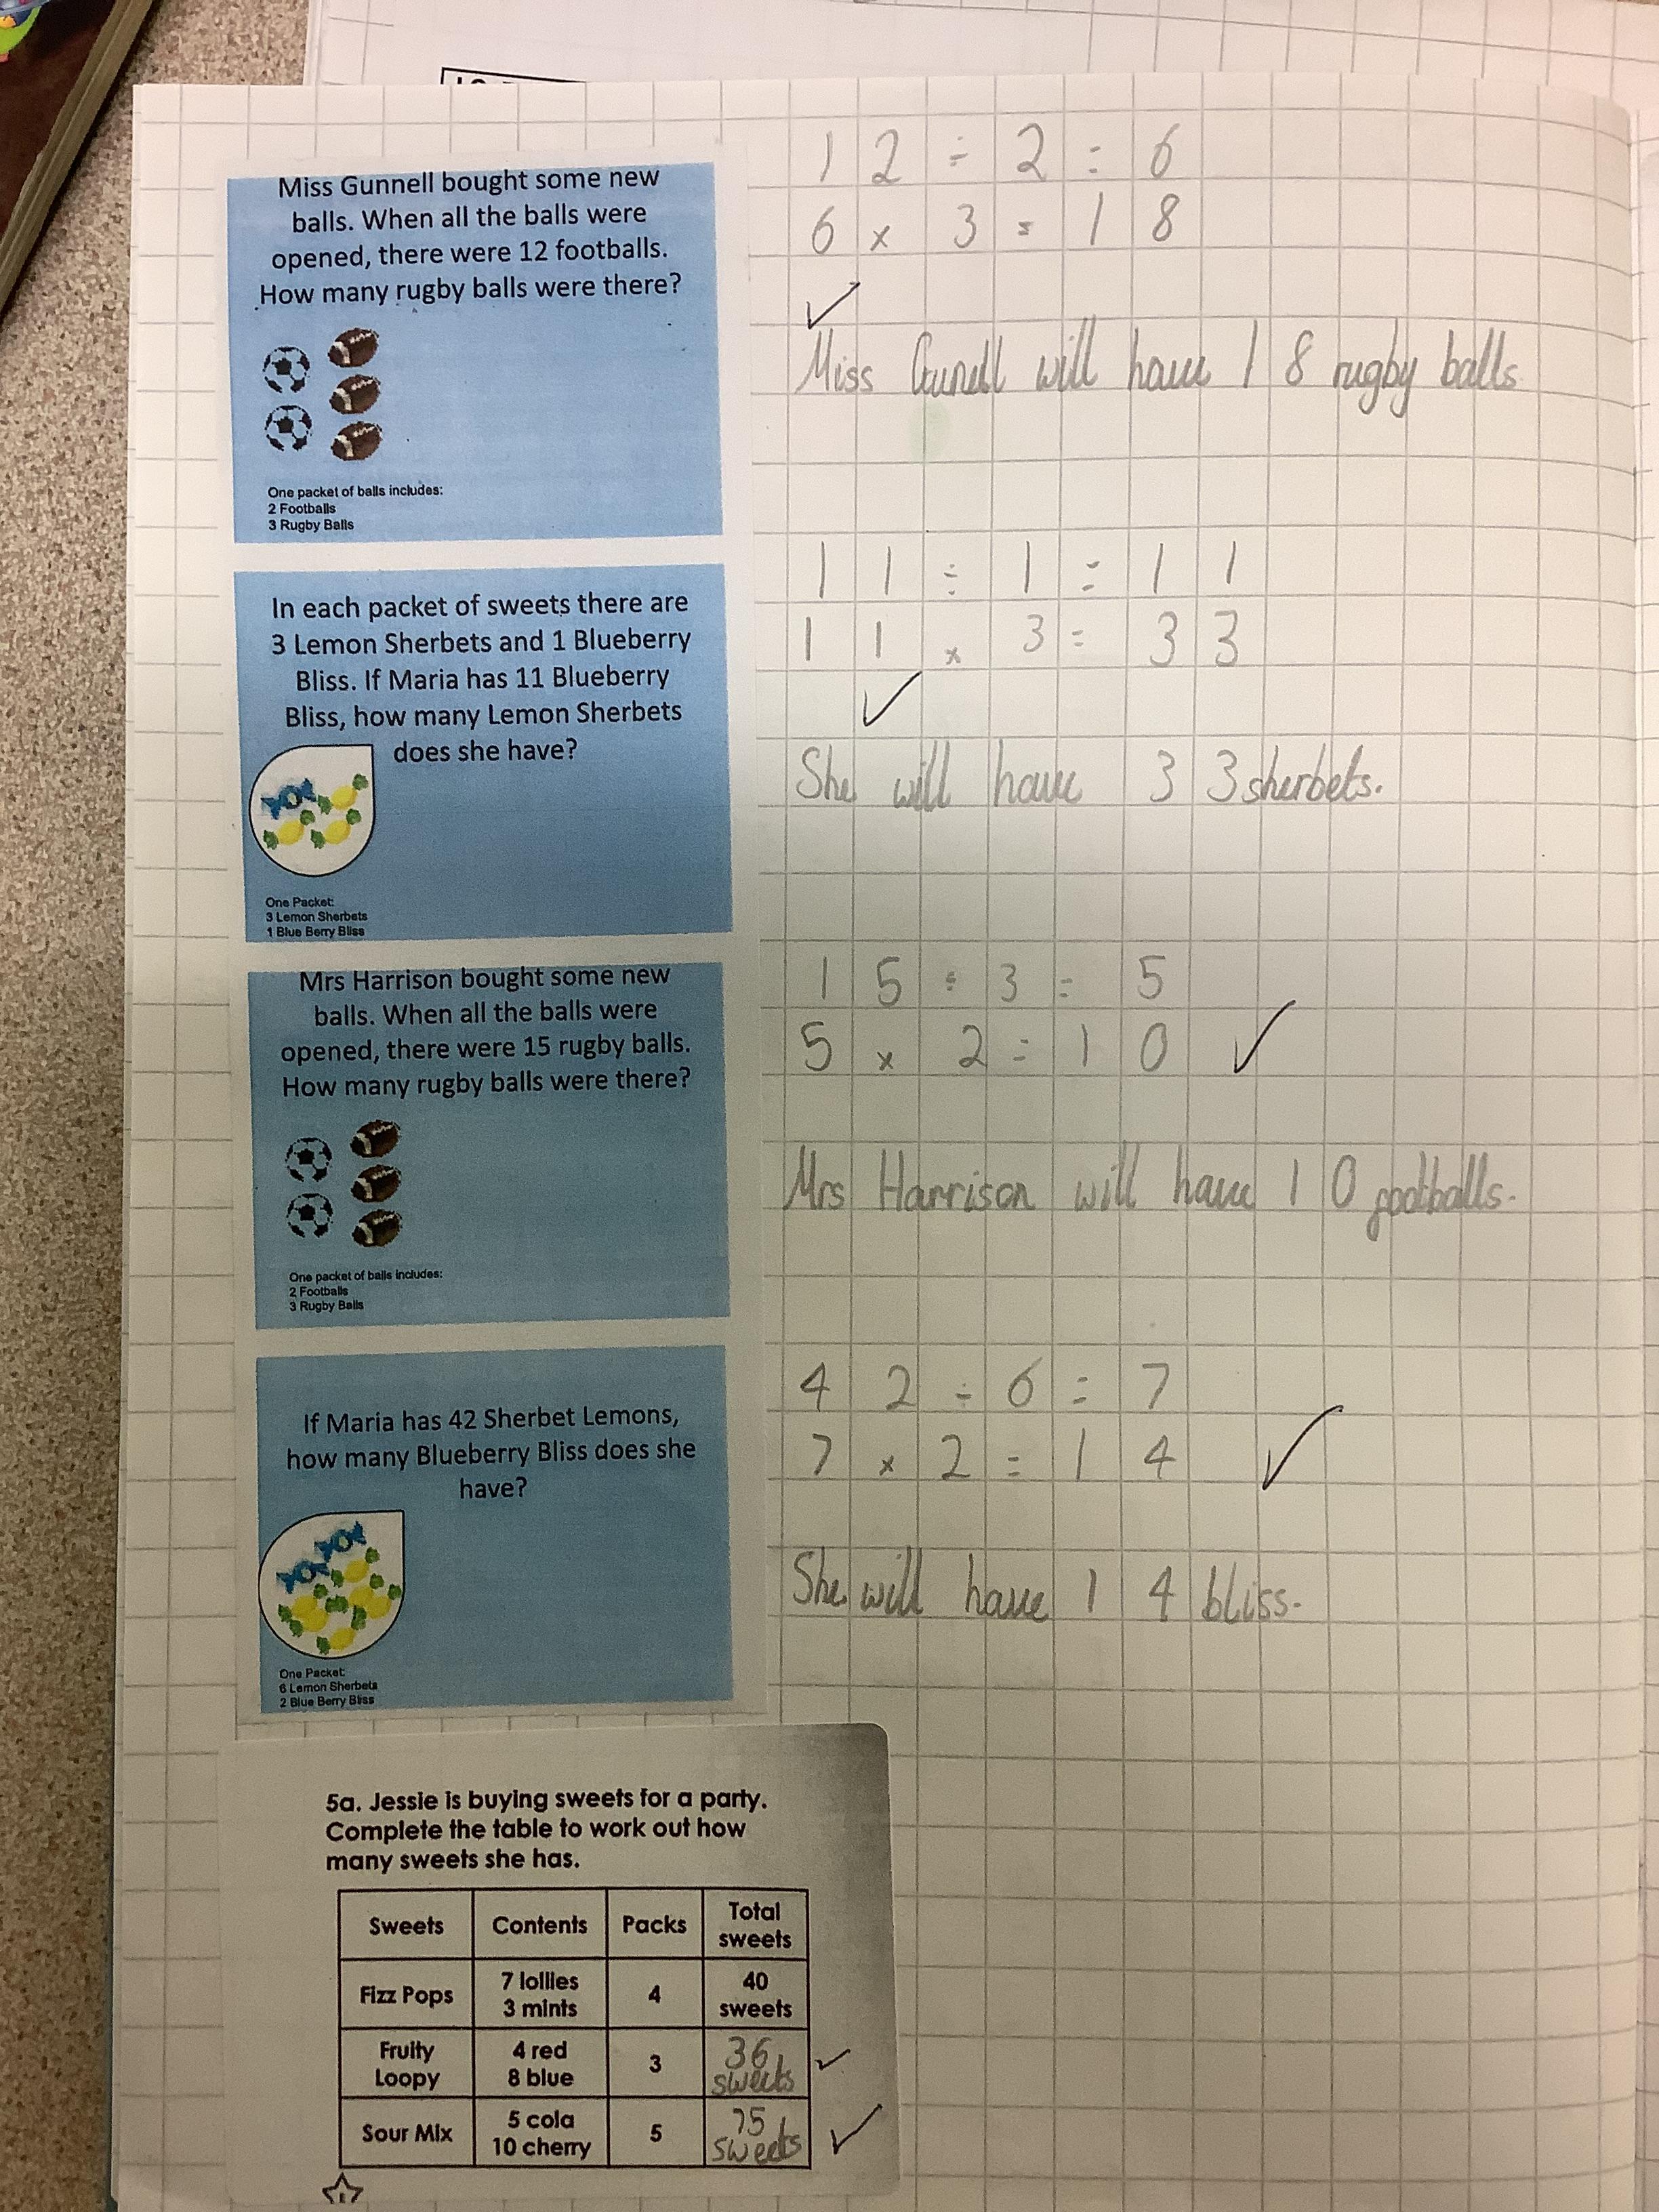 Miss Gunnell bought some new
balls. When all the balls were
opened, there were 12 footballs.
How many rugby balls were there?
One packet of balls includes:
2 Footballs
3 Rugby Balls
12 ÷ 2 = 6
6 x 3 = 18
Miss Gunell will have 18 rugby balls
In each packet of sweets there are
3 Lemon Sherbets and 1 Blueberry
Bliss. If Maria has 11 Blueberry
Bliss, how many Lemon Sherbets
does she have?
One Packet:
3 Lemon Sherbets
1 Blue Berry Bliss
11 ÷ 1 = 11
11 x 3 = 33
She will have 33 sherbets.
Mrs Harrison bought some new
balls. When all the balls were
opened, there were 15 rugby balls.
How many rugby balls were there?
One packet of balls includes:
2 Footballs
3 Rugby Balls
15 ÷ 3 = 5
5 x 2 = 10
Mrs Harrison will have 10 footballs.
If Maria has 42 Sherbet Lemons,
how many Blueberry Bliss does she
have?
One Packet:
6 Lemon Sherbets
2 Blue Berry Bliss
42 ÷ 6 = 7
7 x 2 = 14
She will have 14 bliss.
5a. Jessie is buying sweets for a party.
Complete the table to work out how
many sweets she has.
Sweets Contents Packs Total sweets
Fizz Pops 7 lollies 3 mints 4 40 sweets
Fruity Loopy 4 red 8 blue 3 36 sweets
Sour Mix 5 cola 10 cherry 5 75 sweets